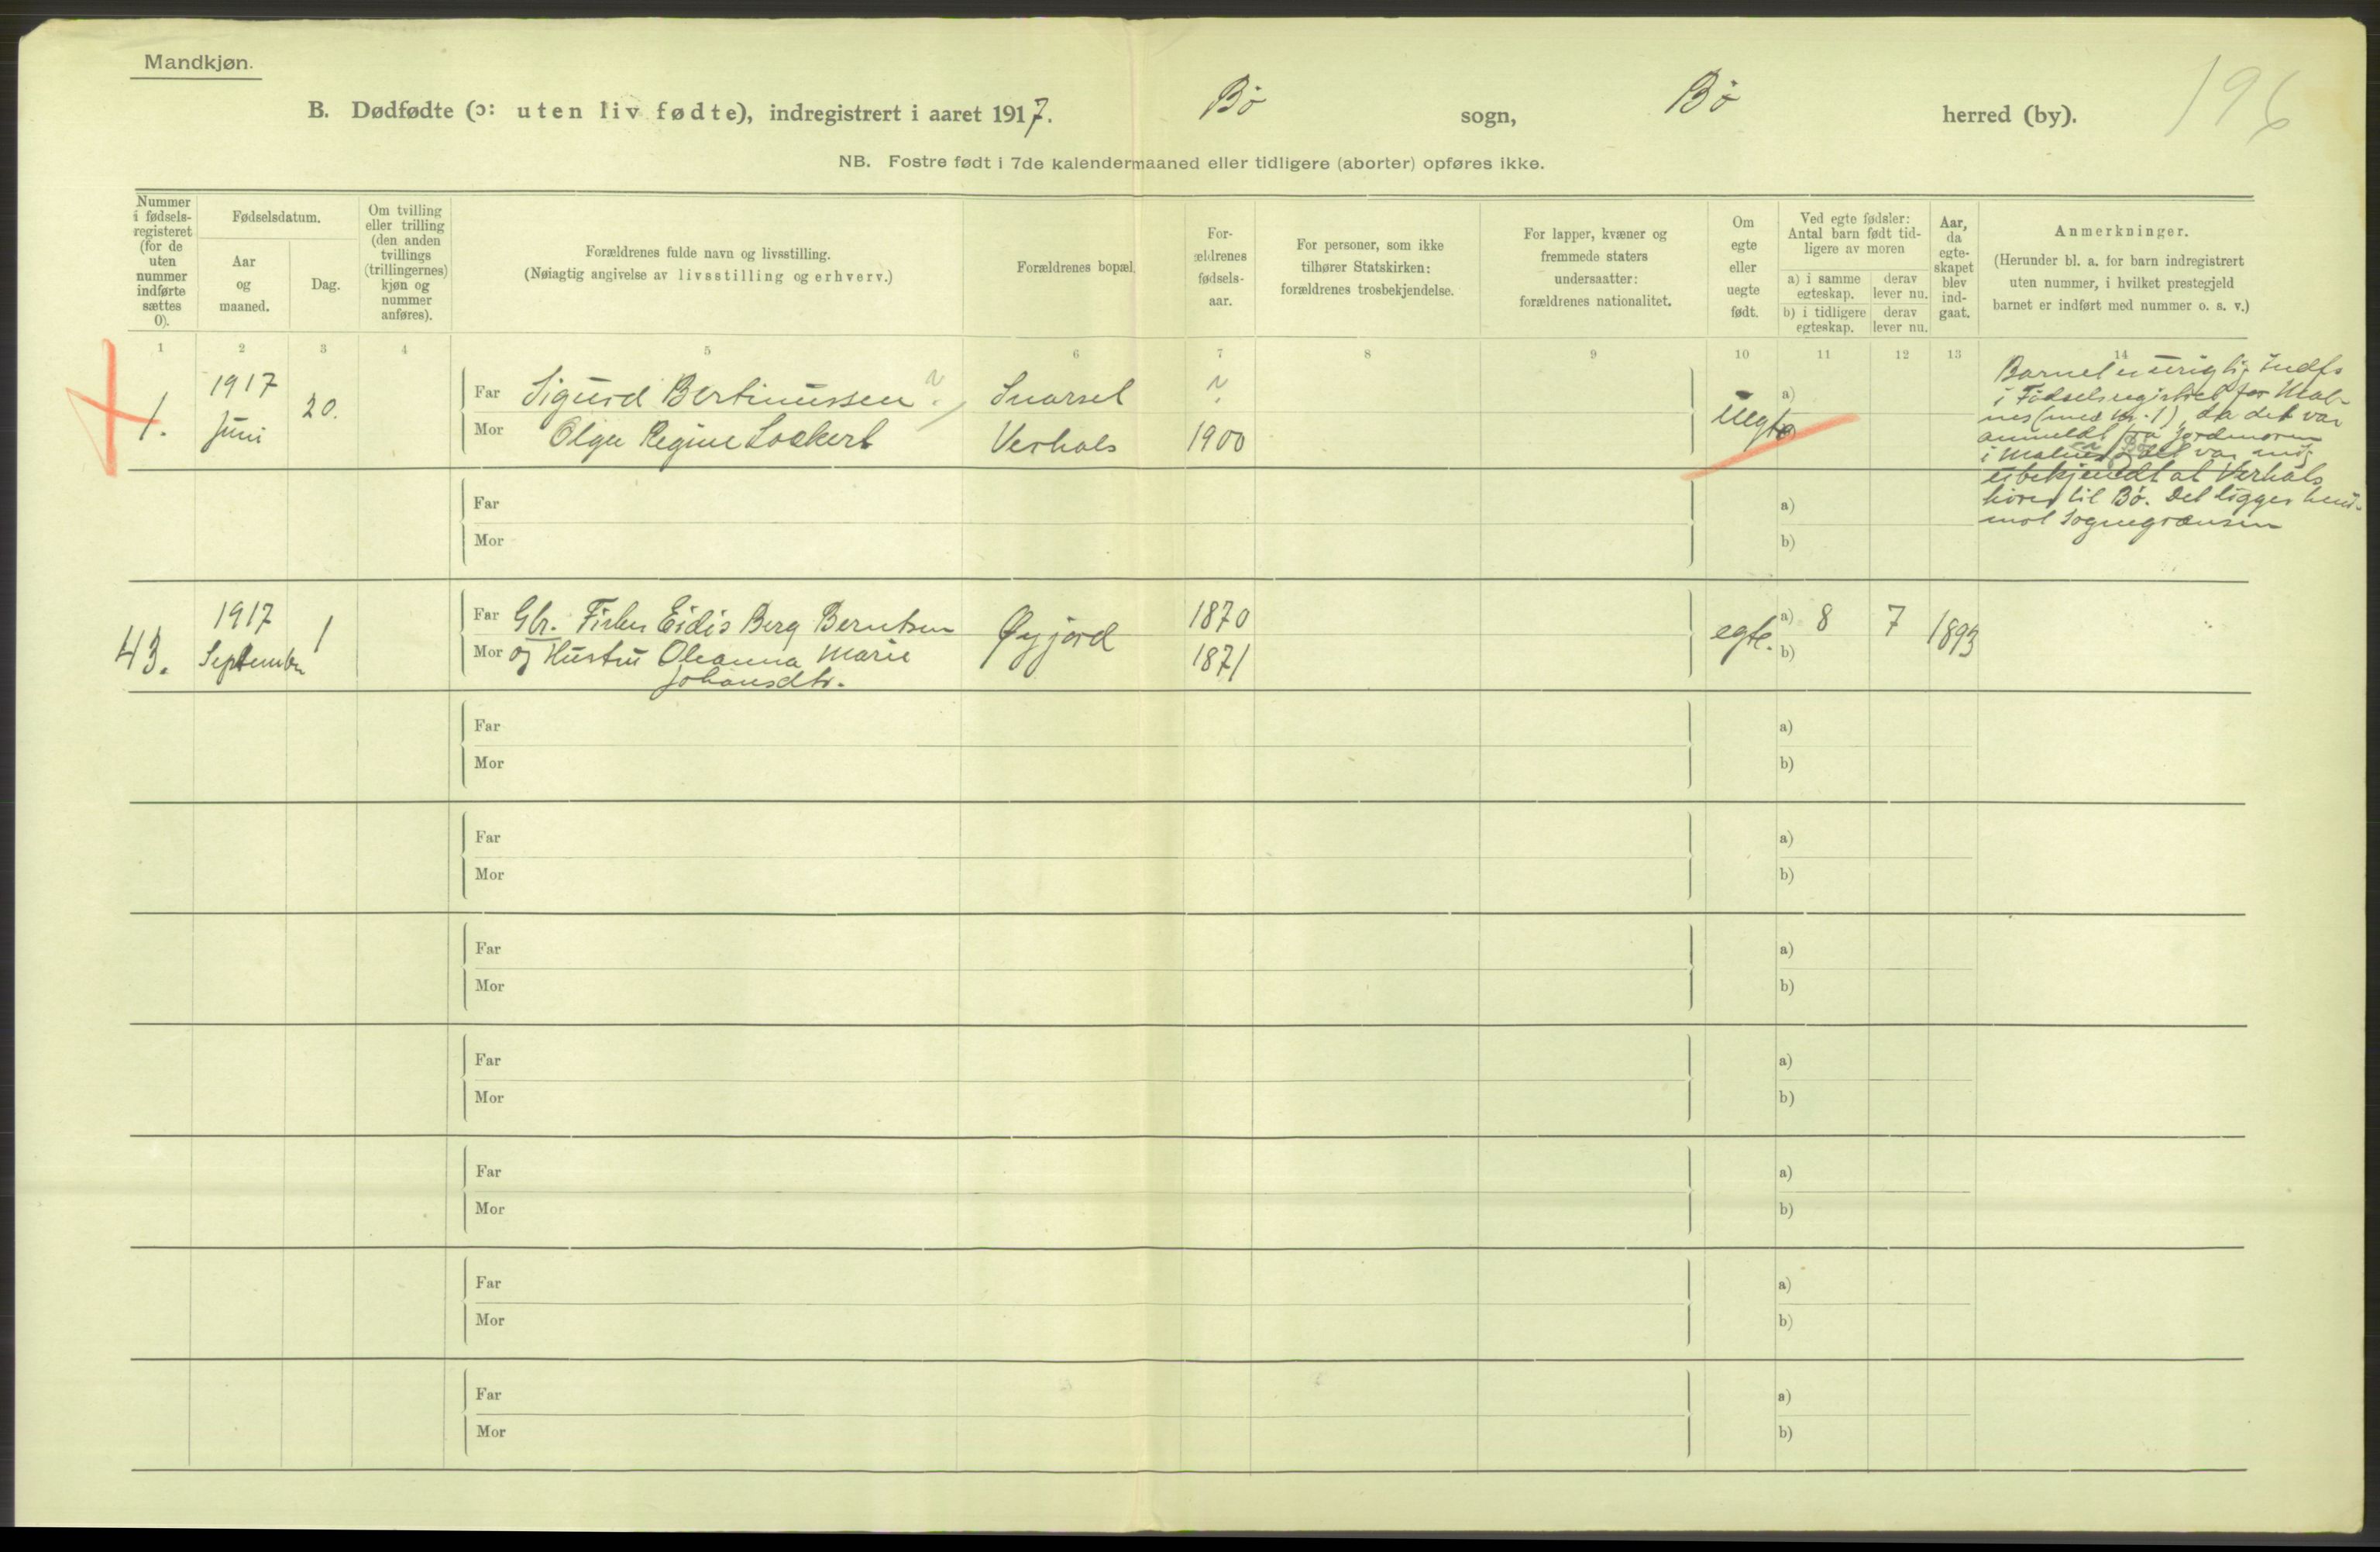 Mandkjøn.
B. Dødfødte (ɔ: uten liv fødte), indregistrert i aaret 1917. Bø sogn, Bø herred (by). 196
NB. Fostre født i 7de kalendermaaned eller tidligere (aborter) opføres ikke.
Nummer i fødsels-registeret (for de uten nummer indførte sættes 0).
Fødselsdatum.
Aar og maaned.
Dag.
Om tvilling eller trilling (den anden tvillings (trillingernes) kjøn og nummer anføres).
Forældrenes fulde navn og livsstilling.
(Nøiagtig angivelse av livsstilling og erhverv.)
Forældrenes bopæl.
For-ældrenes fødsels-aar.
For personer, som ikke tilhører Statskirken: forældrenes trosbekjendelse.
For lapper, kvæner og fremmede staters undersaatter: forældrenes nationalitet.
Om egte eller uegte født.
Ved egte fødsler: Antal barn født tid-ligere av moren
a) i samme egteskap. derav lever nu.
b) i tidligere egteskap. derav lever nu.
Aar, da egte-skapet blev ind-gaat.
Anmerkninger.
(Herunder bl. a. for barn indregistrert uten nummer, i hvilket prestegjeld barnet er indført med nummer o. s. v.)
1 2 3 4 5 6 7 8 9 10 11 12 13 14
1. 1917 Juni 20.
Far Sigurd Bertinussen ? Snarset ?
Mor Olga Regine Lockert Verhals 1900
Uegte a)
Barnet er urigtig indf.
i Fødselsregistret for Mal-
nes (med Nr. 1), da det var
anmeldt fra Jordmoren
i Malnes det var mig
ei bekjendt at Verhals
hører til Bø. Det ligger hen-
mot Sognegrænsen
Far a)
Mor b)
43. 1917 September 1
Far Gbr. Fisker Eidis Berg Berntsen Øyjord 1870
Mor og Hustru Oleanna Marie 1871
Johansdtr.
egte. a) 8 7 1893
b)
Far a)
Mor b)
Far a)
Mor b)
Far a)
Mor b)
Far a)
Mor b)
Far a)
Mor b)
Far a)
Mor b)
Far a)
Mor b)